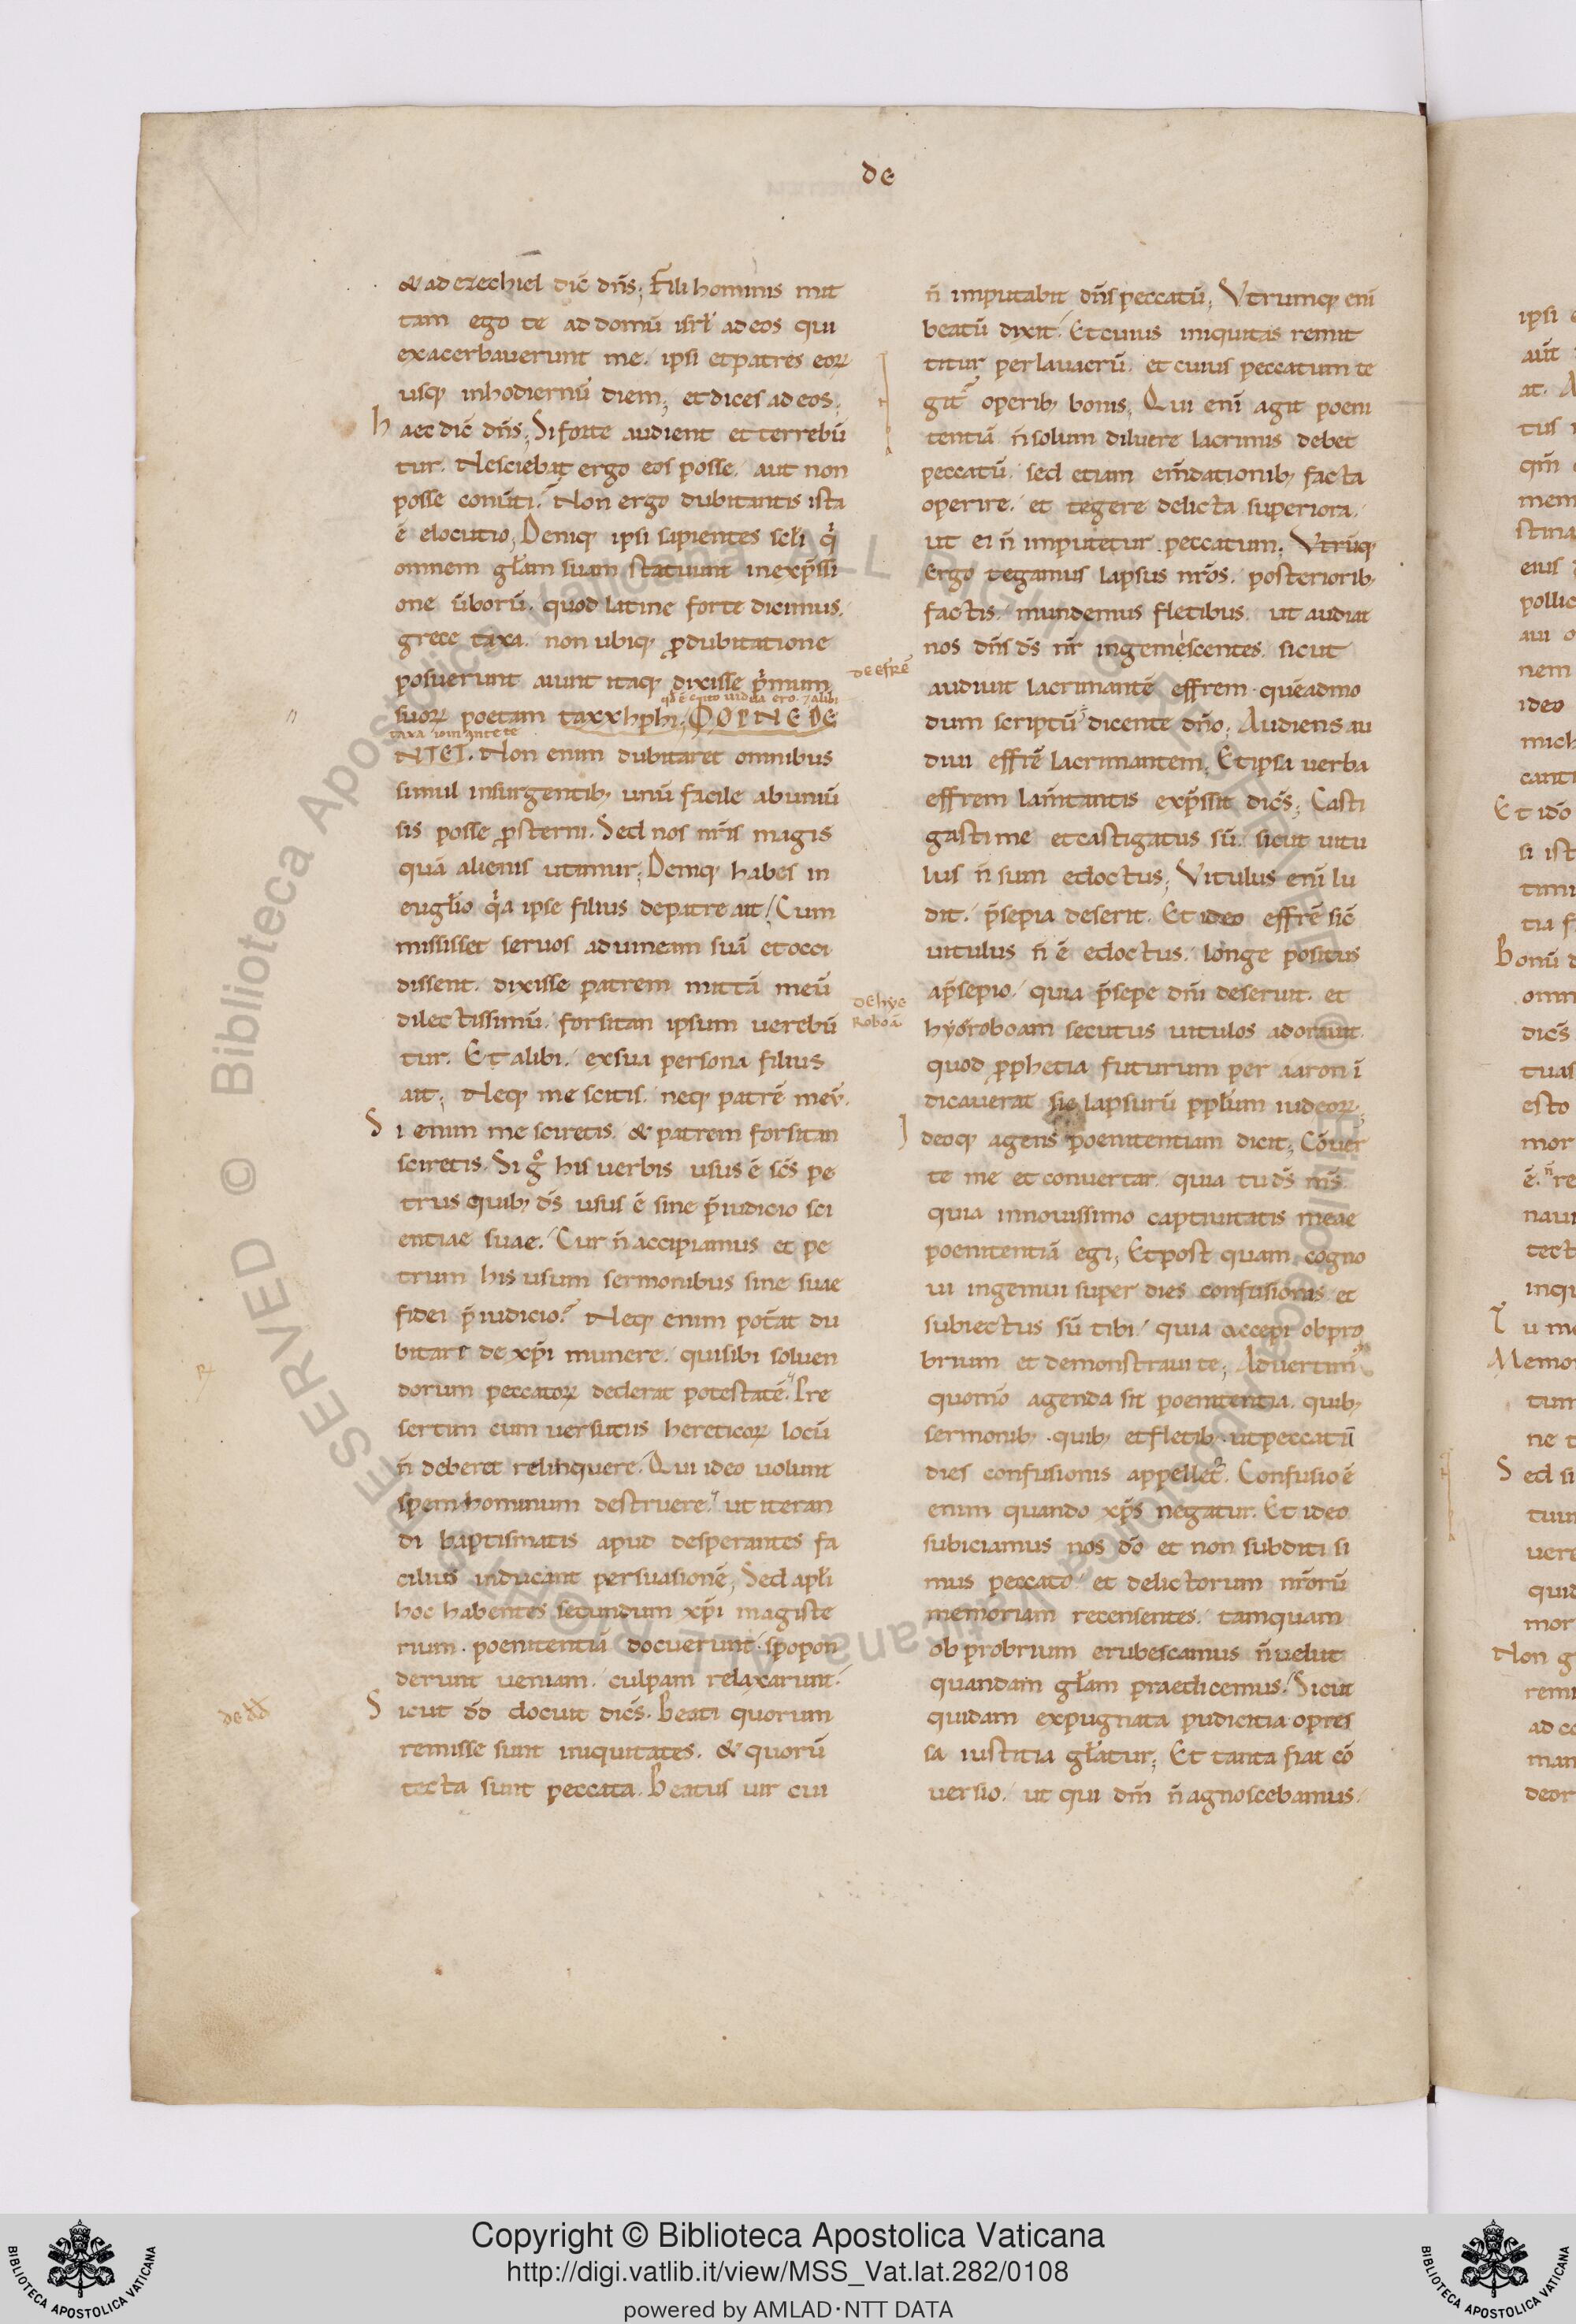 de
& ad ezechiel dic̄ dn̄s; Fili hominis mit
tam ego te ad domū isrl̄ ad eos qui
exacerbaverunt me. ipsi et patres eoꝝ
usq; in hodiernū diem; et dices ad eos;
haec dic̄ dn̄s; Si forte audient et terrebū
tur. Nesciebat ergo eos posse. aut non
posse conūti? Non ergo dubitantis ista
ē elocutio; Deniq; ipsi sapientes scl̄i
omnem gl̄am suam statuunt in exp̄ssi
one ūborū. quod latine forte dicimus.
grece taxa. non ubiq; ꝓ dubitatione
posuerunt aiunt itaq; dixisse p̄mum
suoꝝ poetam taxxhphi;
NTEI. Non enim dubitaret omnibus
simul insurgentib; unū facile ab univ̄
sis posse ꝓsterni. Sed nos nr̄is magis
quā alienis utimur; Deniq; habes in
eugl̄io qa ipse filius de patre ait; Cum
misisset servos ad vineam suā et occi
dissent. dixisse patrem mittā meū
dilectissimū. forsitan ipsum verebū
tur. Et alibi. ex sua persona filius
ait; Neq; me scitis. neq; patrē meū.
Si enim me sciretis. & patrem forsitan
sciretis. Si gͦ his verbis usus ē sc̄s pe
trus quib; ds̄ usus ē sine p̄iudicio sci
entiae suae. Cur n̄ accipiamus et pe
trum his usum sermonibus sine suae
fidei p̄iudicio? Neq; enim pot̄at du
bitare de xp̄i munere. qui sibi solven
dorum peccatoꝝ dederat potestatē. Pre
sertim cum versutiis hereticoꝝ locū
n̄ deberet relinquere. Qui ideo volunt
spem hominum destruere. ut iteran
di baptismatis apud desperantes fa
cilius inducant persuasionē; Sed apl̄i
hoc habentes secundum xp̄i magiste
rium. poenitentiā docuerunt. spopon
derunt veniam. culpam relaxarunt.
Sicut dd̄ docuit dic̄s. Beati quorum
remisse sunt iniquitates. & quorū
tecta sunt peccata. Beatus vir cui
de dd̄
n̄ imputabit dn̄s peccatū; Utrumq; eni
beatū dixit. Et cuius iniquitas remit
titur per lavacrū. et cuius peccatum te
git operib; bonis; Qui enī agit poeni
tentiā n̄ solum diluere lacrimis debet
peccatū. sed etiam em̄dationib; facta
operire. et tegere delicta superiora.
ut ei n̄ imputetur peccatum; Utrūq;
ergo tegamus lapsus nr̄os. posteriorib;
factis. mundemus fletibus. ut audiat
nos dn̄s ds̄ nr̄ ingemescentes. sicut
de efrē
audiuit lacrimantē effrem. quēadmo
dum scriptū dicente dn̄o; Audiens au
divi effrē lacrimantem; Et ipsa verba
effrem lam̄tantis exp̄ssit dic̄s; Casti
gasti me et castigatus sū. sicut vitu
lus n̄ sum edoctus; Vitulus enī lu
dit. p̄sepia deserit. Et ideo effrē sic̄
vitulus n̄ ē edoctus. longe positus
de hye
roboā
a p̄sepio. quia p̄sepe dn̄i deseruit. et
hyeroboam secutus vitulos adoravit.
quod ꝓphetia futurum per aaron ī
dicaverat sic lapsurū ppl̄um iudeoꝝ;
Ideoq; agens poenitentiam dicit; Cōver
te me et convertar. quia tu ds̄ ms̄.
quia in novissimo captivitatis meae
poenitentiā egi; Et post quam cogno
vi ingemui super dies confusionis et
subiectus sū tibi. quia accepi obpro
brium et demonstravi te; Advertim
quomo agenda sit poenitentia. quib;
sermonib;. quib; et fletib;. ut peccatū
dies confusionis appellet̄. Confusio ē
enim quando xp̄s negatur. Et ideo
subiciamus nos dō et non subditi si
mus peccato. et delictorum nr̄orū
memoriam recensentes. tamquam
obprobrium erubescamus n̄ velut
quandam gl̄am praedicemus. Sicut
quidam expugnata pudicitia. opres
sa iustitia gl̄atur; Et tanta fiat cō
versio. ut qui dm̄ n̄ agnoscebamus.
Copyright © Biblioteca Apostolica Vaticana
http://digi.vatlib.it/view/MSS_Vat.lat.282/0108
powered by AMLAD·NTT DATA
BIBLIOTECA APOSTOLICA VATICANA
BIBLIOTECA APOSTOLICA VATICANA